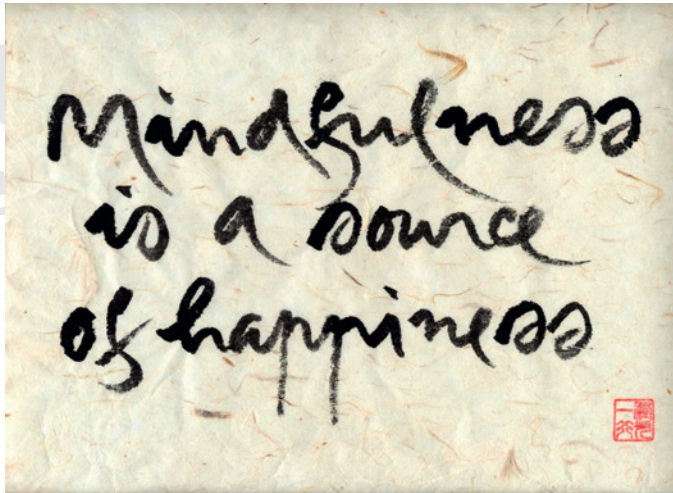 Mindfulness
is a source
of happiness